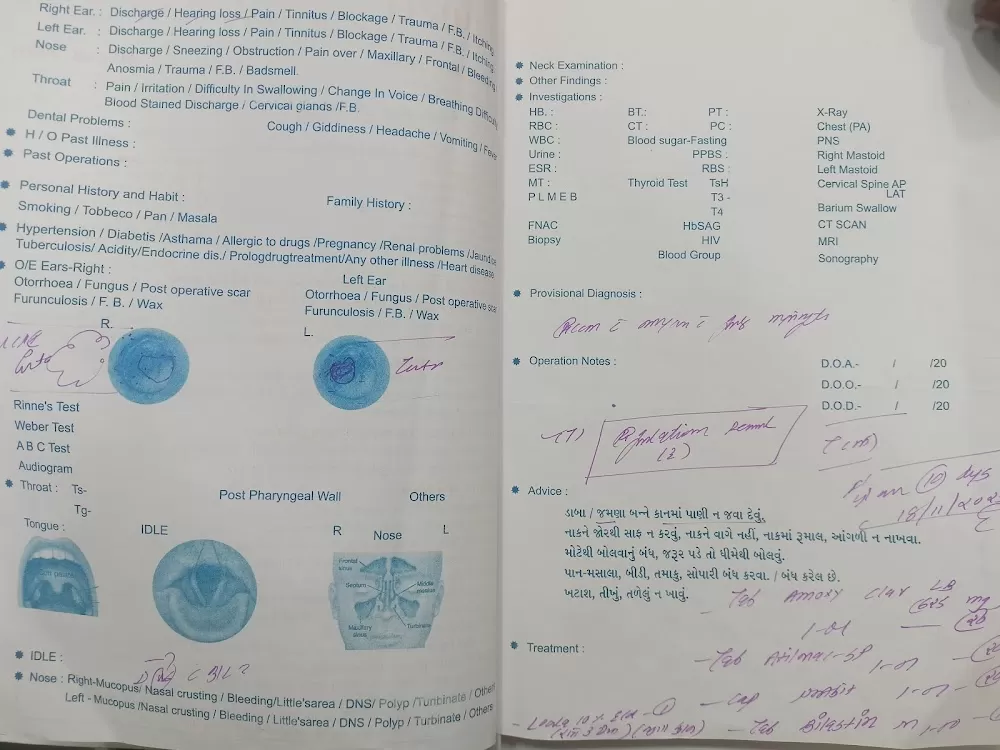 Right Ear. : Discharge / Hearing loss / Pain / Tinnitus / Blockage / Trauma / F.B. / Itching
Left Ear. : Discharge / Hearing loss / Pain / Tinnitus / Blockage / Trauma / F.B. / Itching
Nose : Discharge / Sneezing / Obstruction / Pain over / Maxillary / Frontal / Bleeding
Anosmia / Trauma / F.B. / Badsmell.
Throat : Pain / Irritation / Difficulty In Swallowing / Change In Voice / Breathing Difficulty
Blood Stained Discharge / Cervical glands /F.B.
Dental Problems : Cough / Giddiness / Headache / Vomiting / Fever
H / O Past Illness :
Past Operations :
Personal History and Habit : Family History :
Smoking / Tobbeco / Pan / Masala
Hypertension / Diabetis /Asthama / Allergic to drugs /Pregnancy /Renal problems /Jaundice
Tuberculosis/ Acidity/Endocrine dis./ Prologdrugtreatment/Any other illness /Heart disease
O/E Ears-Right : Left Ear
Otorrhoea / Fungus / Post operative scar Otorrhoea / Fungus / Post operative scar
Furunculosis / F. B. / Wax Furunculosis / F.B. / Wax
R. L.
Rinne's Test
Weber Test
A B C Test
Audiogram
Throat : Ts- Post Pharyngeal Wall Others
Tg-
Tongue : IDLE R Nose L
Frontal sinus
Septum Middle
Maxillary sinus Turbinate
IDLE :
Nose : Right-Mucopus/ Nasal crusting / Bleeding/Little'sarea / DNS/ Polyp /Turbinate / Others
Left - Mucopus /Nasal crusting / Bleeding / Little'sarea / DNS / Polyp / Turbinate / Others
Neck Examination :
Other Findings :
Investigations :
HB. : BT.: PT : X-Ray
RBC : CT : PC : Chest (PA)
WBC : Blood sugar-Fasting PNS
Urine : PPBS : Right Mastoid
ESR : RBS : Left Mastoid
MT : Thyroid Test TsH Cervical Spine AP
LAT
P L M E B T3 -
T4 Barium Swallow
FNAC HbSAG CT SCAN
Biopsy HIV MRI
Blood Group Sonography
Provisional Diagnosis :
Operation Notes : D.O.A.- / /20
D.O.O.- / /20
D.O.D.- / /20
(10) dys
18/11/202
Advice :
ડાબા / જમણા બન્ને કાનમાં પાણી ન જવા દેવું.
નાકને જોરથી સાફ ન કરવું, નાકને વાગે નહીં, નાકમાં રૂમાલ, આંગળી ન નાખવા.
મોટેથી બોલવાનું બંધ, જરૂર પડે તો ધીમેથી બોલવું.
પાન-મસાલા, બીડી, તમાકુ, સોપારી બંધ કરવા. / બંધ કરેલ છે.
ખટાશ, તીખું, તળેલું ન ખાવું.
Tab Amoxy Clav LB 625 mg
Treatment :
Tab
Cap
Tab Bilastin M